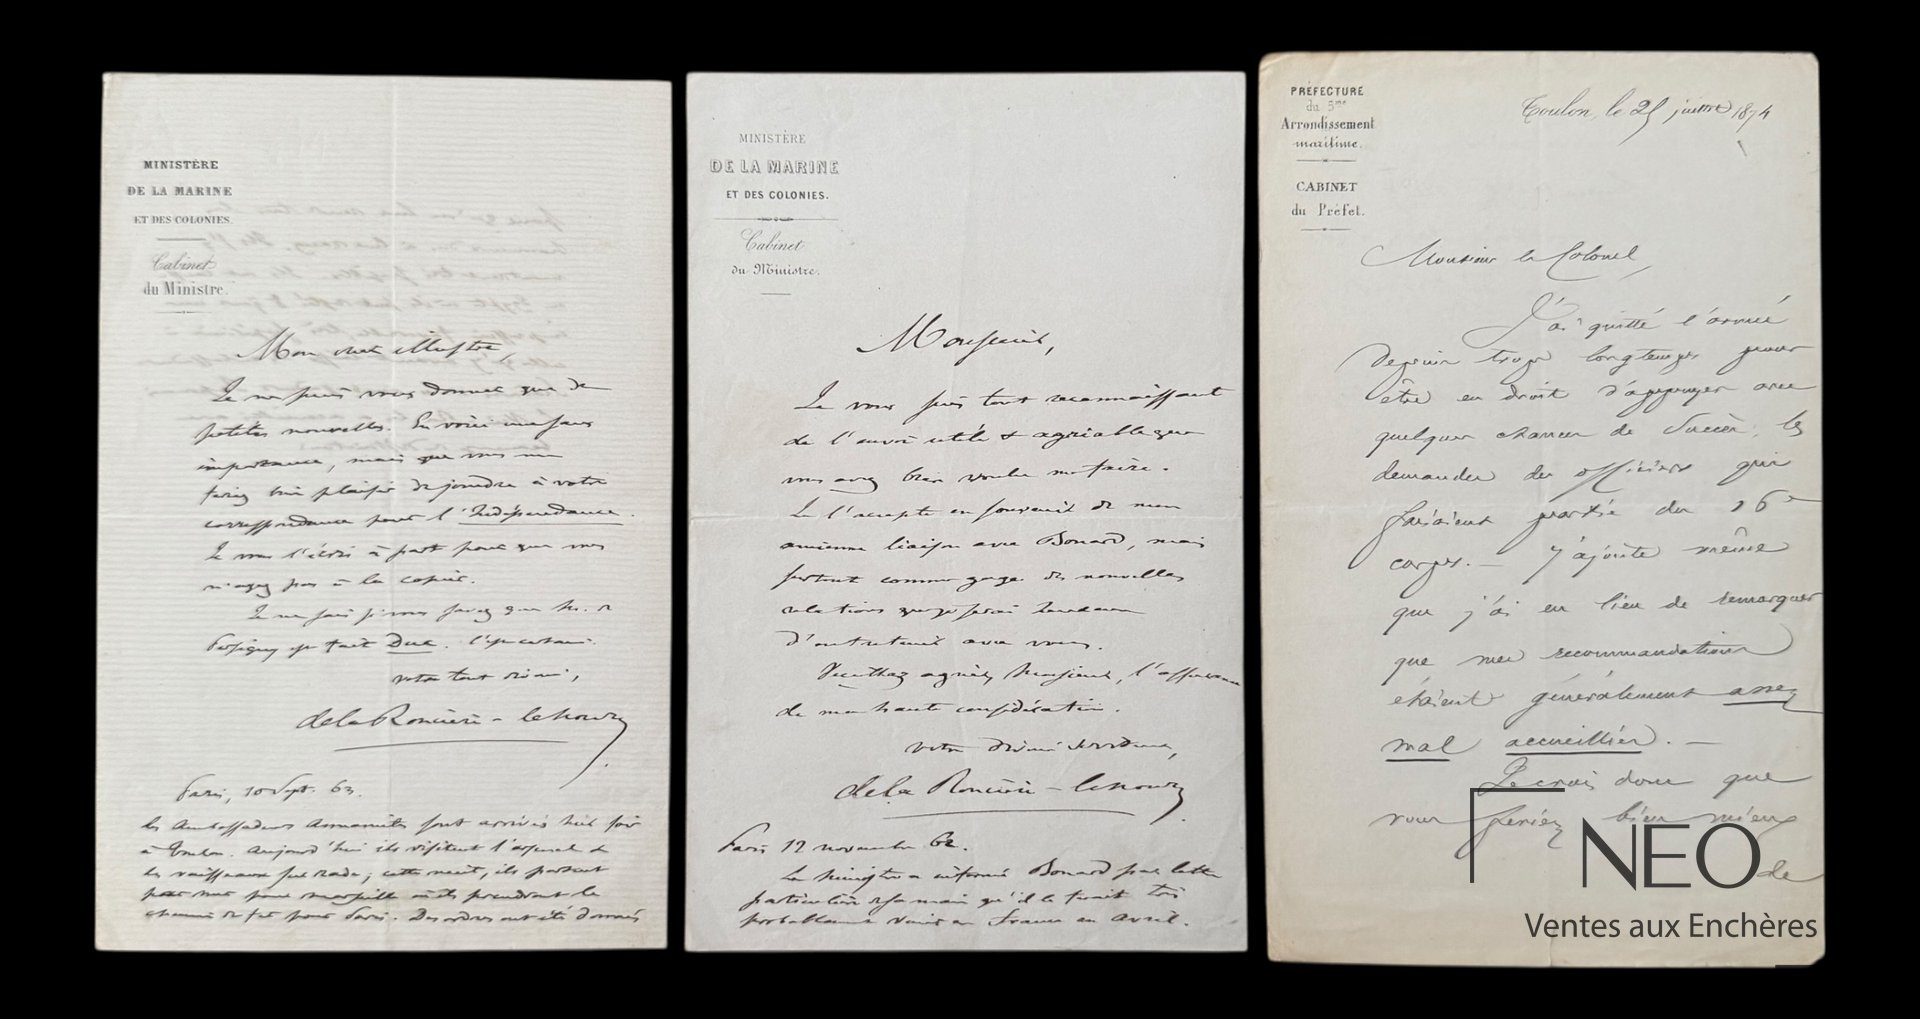 MINISTÈRE
DE LA MARINE
ET DES COLONIES.
Cabinet
du Ministre.
Mon cher
Je ne puis vous donner que de
petites nouvelles. En voici une sans
importance, mais que vous me
feriez bien plaisir de joindre à votre
correspondance pour l'Indépendance.
Je vous l'écris à part pour que vous
n'ayez pas à la copier.
Je ne sais si vous savez que Mr. de
Persigny est fait Duc. C'est certain.
votre tout dévoué,
de la Roncière-le Noury
Paris, 10 Sept. 63.
les Ambassadeurs Annamites sont arrivés hier soir
à Toulon. Aujourd'hui ils visitent l'arsenal &
les vaisseaux sur rade; cette nuit, ils partent
par mer pour Marseille où ils prendront le
chemin de fer pour Paris. Des ordres ont été donnés
MINISTÈRE
DE LA MARINE
ET DES COLONIES.
Cabinet
du Ministre.
Monsieur,
Je vous suis tout reconnaissant
de l'envoi utile & agréable que
vous avez bien voulu me faire.
Je l'accepte en souvenir de mon
ancienne liaison avec Bonard, mais
surtout comme gage des nouvelles
relations que je serai heureux
d'entretenir avec vous.
Veuillez agréer, Monsieur, l'assurance
de ma haute considération.
votre dévoué serviteur,
de la Roncière-le Noury
Paris 12 novembre 62.
Le Ministre a informé Bonard par lettre
particulière de sa main qu'il le ferait très
probablement venir en France en avril.
PRÉFECTURE
du 5me
Arrondissement
maritime.
CABINET
du Préfet.
Toulon, le 25 juillet 1874
Monsieur le Colonel,
J'ai quitté l'armée
depuis trop longtemps pour
être en droit d'appuyer avec
quelques chances de succès, les
demandes des officiers qui
faisaient partie du 16e
corps. — J'ajoute même
que j'ai eu lieu de remarquer
que mes recommandations
étaient généralement assez
mal accueillies. —
Je crois donc que
vous feriez bien mieux
de
NEO
Ventes aux Enchères